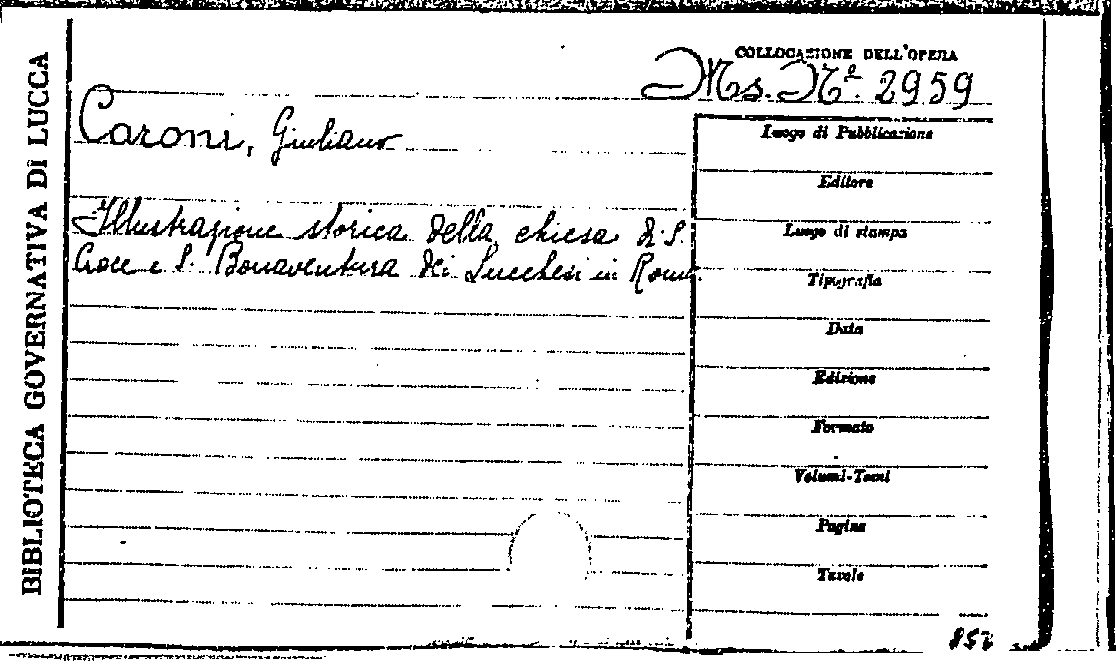 BIBLIOTECA GOVERNATIVA DI LUCCA
COLLOCAZIONE DELL'OPERA
Ms. Nº. 2959
Caroni, Giuliano
Illustrazione storica della chiesa di S.
Croce e S. Bonaventura dei Lucchesi in Roma.
Luogo di Pubblicazione
Editore
Luogo di stampa
Tipografia
Data
Edizione
Formato
Volumi-Tomi
Pagine
Tavole